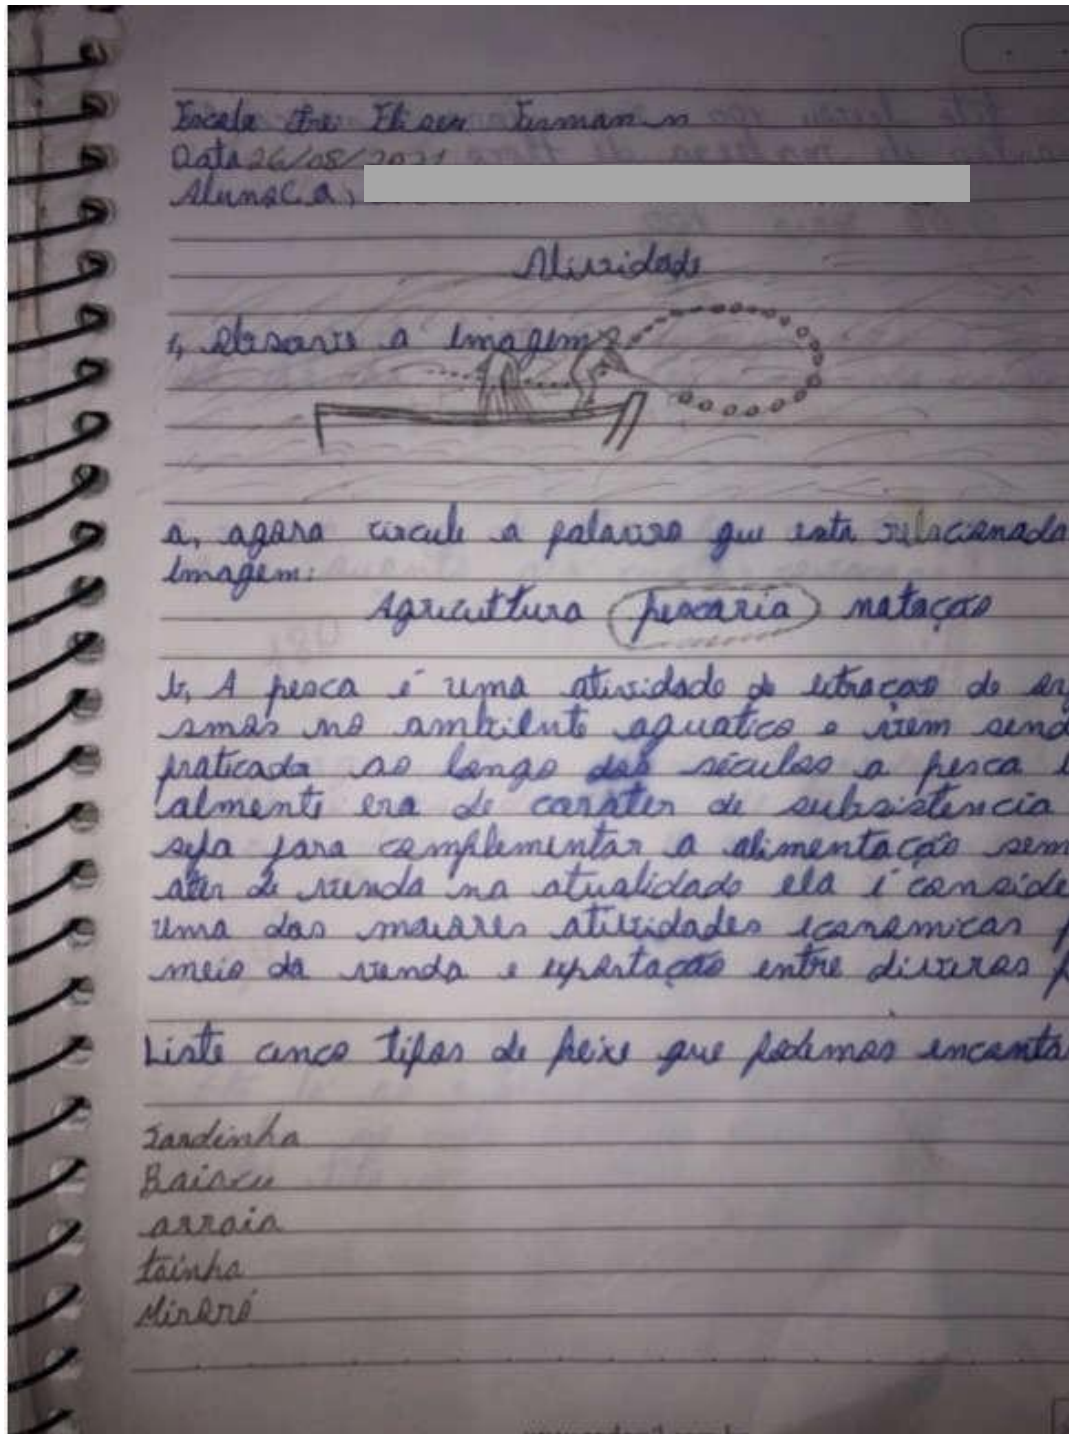 Data 26/08/2021
Aluna(a,
Atividade
1, Observe a imagem
a, agora circule a palavra que esta relacionada
imagem:
Agricultura pescaria natação
b, A pesca é uma atividade de
ismos no ambiente aguatico e vem send
praticada ao longo dos séculos a pesca i
almente era de carater de subsistencia
seja para complementar a alimentação sem
ater de venda na atualidade ela é conside
uma das maiores atividades economicas p
meio da venda e exportação entre diversos p
Liste cinco tipos de peixe que podemos encontra
Sardinha
Baiacu
arraia
tainha
Miroró